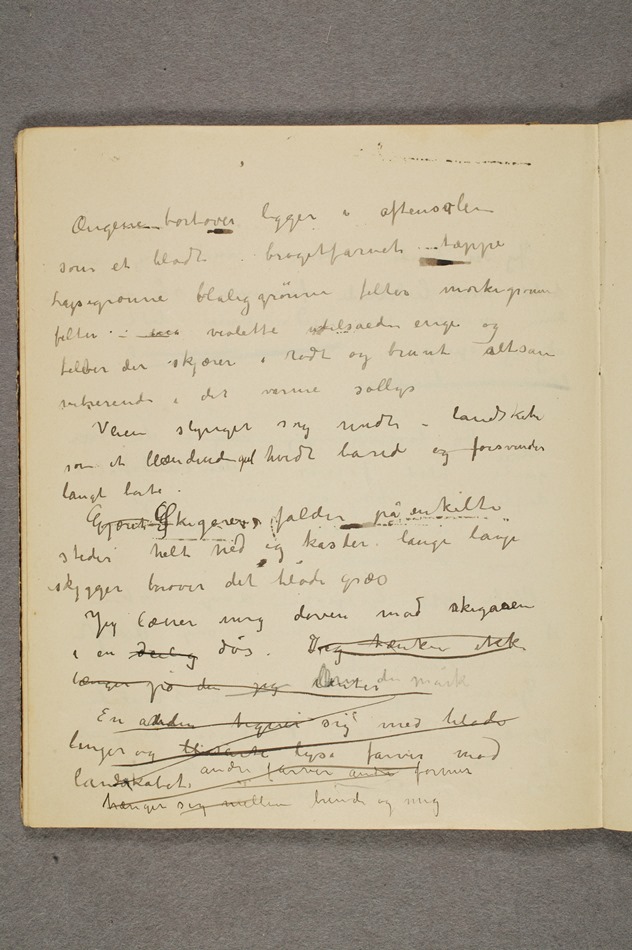 Engene bortover ligger i aftensolen
som et blødt broget farvet tæppe
lysegrønne blåliggrönne felter mørkegrønne
felter violette udtilsaede enge og
felter der skjærer i rødt og brunt altsam
vibrerende i det varme sollys
Veien slynger sig rundt i landskabet
som et hvidt bånd og forsvinder
langt borte.
Skigeren falder på enkelte
steder helt ned og kaster lange lange
skygger bover det bløde græs
Jeg læner mig doven mod skigaren
i en deilig døs. Jeg tænker ikke
længer på den jeg venter
En anden tegner sig med bløde
linjer og lyse farver mod
landskabet andre farver andre former
hænger sig mellem hende og mig